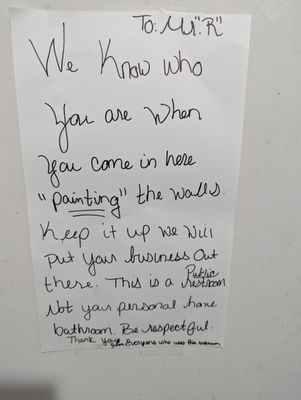 To: Mr. "R"
We Know who
You are when
you come in here
"painting" the walls.
Keep it up we will
put your business out
there. This is a Public restroom
Not your personal home
bathroom. Be respectful.
Thank you Everyone who uses this